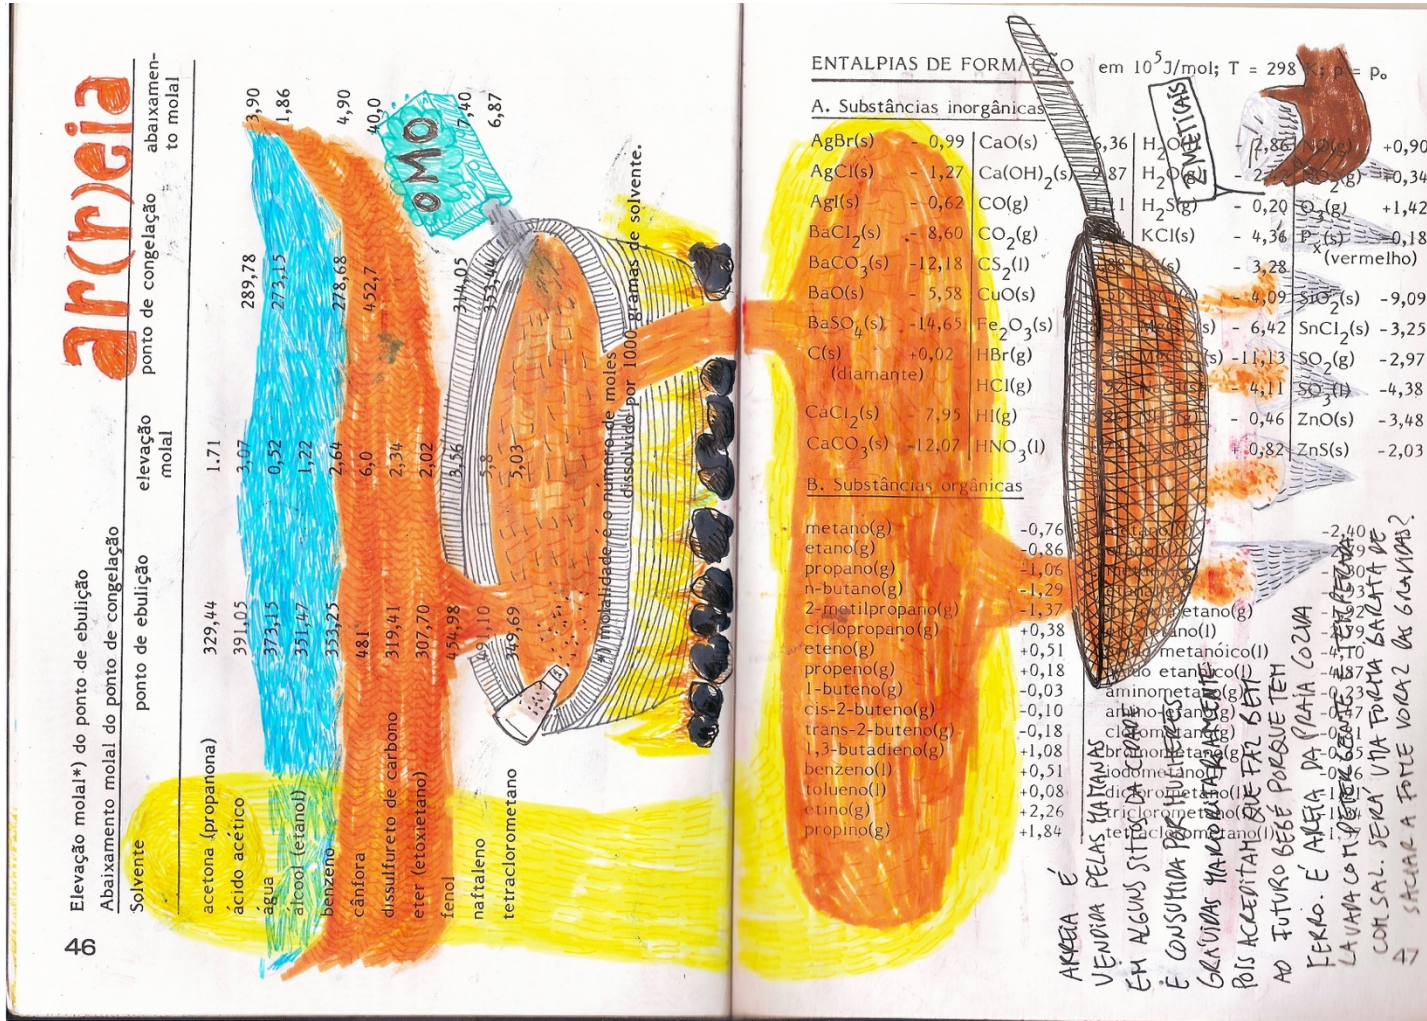 ar(r)eia
Elevação molal*) do ponto de ebulição
Abaixamento molal do ponto de congelação
Solvente ponto de ebulição elevação molal ponto de congelação abaixamen-
to molal
acetona (propanona) 329,44 1.71
ácido acético 391,05 3,07 289,78 3,90
água 373,15 0,52 273,15 1,86
álcool (etanol) 351,47 1,22
benzeno 353,25 2,64 278,68 4,90
cânfora 481 6,0 452,7 40,0
dissulfureto de carbono 319,41 2,34
eter (etoxietano) 307,70 2,02
fenol 454,98 3,56 314,05 7,40
naftaleno 491,10 5,8 353,44 6,87
tetraclorometano 349,69 5,03
*) molalidade é o número de moles
dissolvido por 1000 gramas de solvente.
OMO
46
ENTALPIAS DE FORMAÇÃO em 10⁵J/mol; T = 298 K; p = p₀
A. Substâncias inorgânicas
AgBr(s) - 0,99 CaO(s) -6,36 H₂O - 2,86 NO(g) +0,90
AgCl(s) - 1,27 Ca(OH)₂(s) -9,87 H₂O(g) NO₂(g) +0,34
AgI(s) - 0,62 CO(g) H₂S(g) - 0,20 O₃(g) +1,42
BaCl₂(s) - 8,60 CO₂(g) KCl(s) - 4,36 Pₓ(s) -0,18
(vermelho)
BaCO₃(s) -12,18 CS₂(l) - 3,28
BaO(s) - 5,58 CuO(s) - 4,09 SiO₂(s) -9,09
BaSO₄(s) -14,65 Fe₂O₃(s) - 6,42 SnCl₂(s) -3,25
C(s) +0,02 HBr(g) -11,13 SO₂(g) -2,97
(diamante) HCl(g) - 4,11 SO₃(l) -4,38
CaCl₂(s) - 7,95 HI(g) - 0,46 ZnO(s) -3,48
CaCO₃(s) -12,07 HNO₃(l) + 0,82 ZnS(s) -2,03
2 METICAIS
B. Substâncias orgânicas
metano(g) -0,76 -2,40
etano(g) -0,86
propano(g) -1,06
n-butano(g) -1,29
2-metilpropano(g) -1,37
ciclopropano(g) +0,38
eteno(g) +0,51 metanóico(l) -4,10
propeno(g) +0,18 etanóico(l) -4,87
1-buteno(g) -0,03 aminometano(g) -0,23
cis-2-buteno(g) -0,10 amino-etano(g)
trans-2-buteno(g) -0,18 clorometano(g)
1,3-butadieno(g) +1,08 bromometano(g)
benzeno(l) +0,51 iodometano
tolueno(l) +0,08 diclorometano(l)
etino(g) +2,26 triclorometano(l)
propino(g) +1,84 tetraclorometano(l)
AREIA É
VENDIDA PELAS MAMANAS
EM ALGUNS SITIOS DA CIDADE
É CONSUMIDA POR MULHERES
GRÁVIDAS MAIORITARIAMENTE
POIS ACREDITAM QUE FAZ BEM
AO FUTURO BEBÉ PORQUE TEM
FERRO. É AREIA DA PRAIA COZIDA
LAVADA COM DETERGENTE E MISTURADA
COM SAL. SERÁ UMA FORMA BARATA DE
SACIAR A FOME VORAZ DAS GRÁVIDAS?